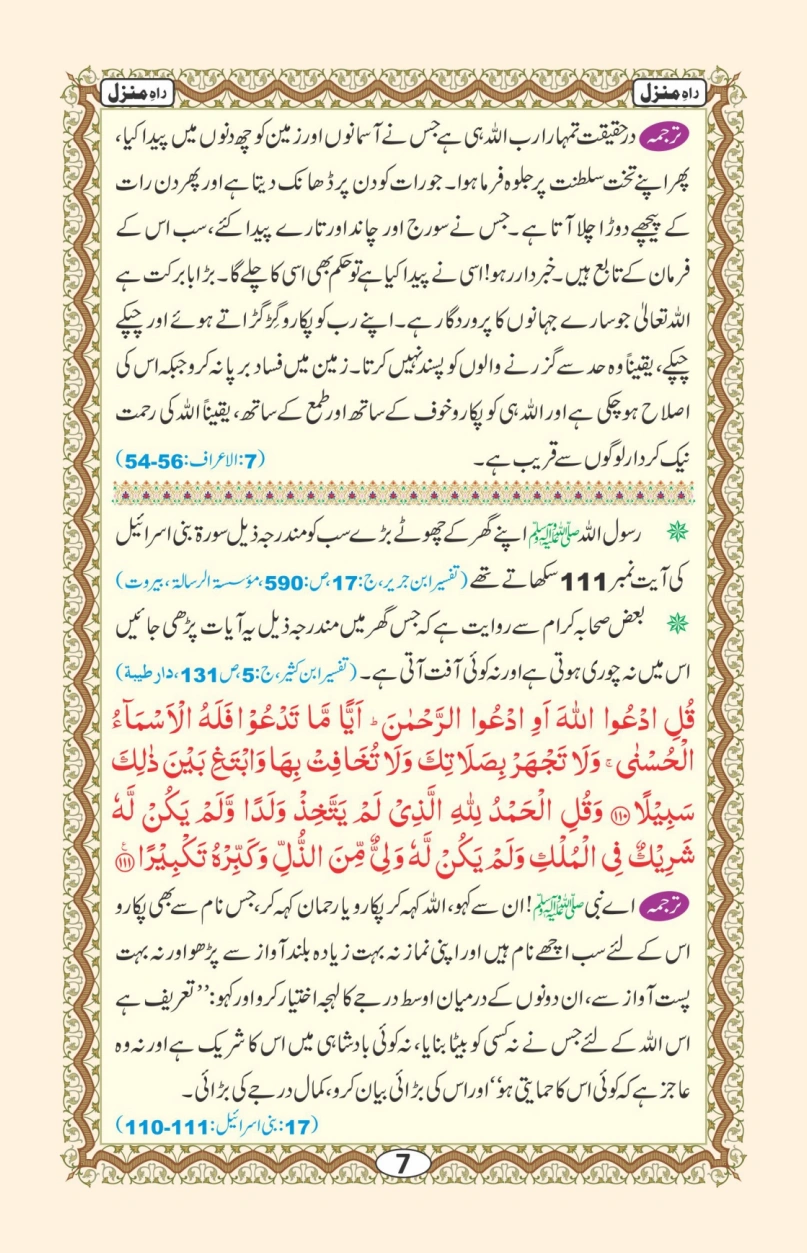 راہِ منزل
راہِ منزل
ترجمہ درحقیقت تمہارا رب اللہ ہی ہے جس نے آسمانوں اور زمین کو چھ دنوں میں پیدا کیا،
پھر اپنے تخت سلطنت پر جلوہ فرما ہوا۔ جو رات کو دن پر ڈھانک دیتا ہے اور پھر دن رات
کے پیچھے دوڑا چلا آتا ہے۔ جس نے سورج اور چاند اور تارے پیدا کئے، سب اس کے
فرمان کے تابع ہیں۔ خبردار رہو! اسی نے پیدا کیا ہے تو حکم بھی اسی کا چلے گا۔ بڑا بابرکت ہے
اللہ تعالیٰ جو سارے جہانوں کا پروردگار ہے۔ اپنے رب کو پکارو گِڑگڑاتے ہوئے اور چپکے
چپکے، یقیناً وہ حد سے گزرنے والوں کو پسند نہیں کرتا۔ زمین میں فساد برپا نہ کرو جبکہ اس کی
اصلاح ہوچکی ہے اور اللہ ہی کو پکارو خوف کے ساتھ اور طمع کے ساتھ، یقیناً اللہ کی رحمت
نیک کردار لوگوں سے قریب ہے۔ (7:الاعراف:56-54)
رسول اللہ ﷺ اپنے گھر کے چھوٹے بڑے سب کو مندرجہ ذیل سورۃ بنی اسرائیل
کی آیت نمبر 111 سکھاتے تھے (تفسیر ابن جریر، ج:17، ص:590، مؤسسۃ الرسالۃ، بیروت)
بعض صحابہ کرام سے روایت ہے کہ جس گھر میں مندرجہ ذیل یہ آیات پڑھی جائیں
اس میں نہ چوری ہوتی ہے اور نہ کوئی آفت آتی ہے۔ (تفسیر ابن کثیر، ج:5، ص131، دار طیبۃ)
قُلِ ادْعُوا اللهَ اَوِ ادْعُوا الرَّحْمٰنَ ؕ اَيًّا مَّا تَدْعُوْا فَلَهُ الْاَسْمَآءُ
الْحُسْنٰى ۚ وَلَا تَجْهَرْ بِصَلَاتِكَ وَلَا تُخَافِتْ بِهَا وَابْتَغِ بَيْنَ ذٰلِكَ
سَبِيْلًا ﴿۱۱۰﴾ وَقُلِ الْحَمْدُ لِلّٰهِ الَّذِىْ لَمْ يَتَّخِذْ وَلَدًا وَّلَمْ يَكُنْ لَّهٗ
شَرِيْكٌ فِى الْمُلْكِ وَلَمْ يَكُنْ لَّهٗ وَلِىٌّ مِّنَ الذُّلِّ وَكَبِّرْهُ تَكْبِيْرًا ﴿۱۱۱﴾
ترجمہ اے نبی ﷺ! ان سے کہو، اللہ کہہ کر پکارو یا رحمان کہہ کر، جس نام سے بھی پکارو
اس کے لئے سب اچھے نام ہیں اور اپنی نماز نہ بہت زیادہ بلند آواز سے پڑھو اور نہ بہت
پست آواز سے، ان دونوں کے درمیان اوسط درجے کا لہجہ اختیار کرو اور کہو: ’’تعریف ہے
اس اللہ کے لئے جس نے نہ کسی کو بیٹا بنایا، نہ کوئی بادشاہی میں اس کا شریک ہے اور نہ وہ
عاجز ہے کہ کوئی اس کا حمایتی ہو‘‘ اور اس کی بڑائی بیان کرو، کمال درجے کی بڑائی۔
(17:بنی اسرائیل:111-110)
7